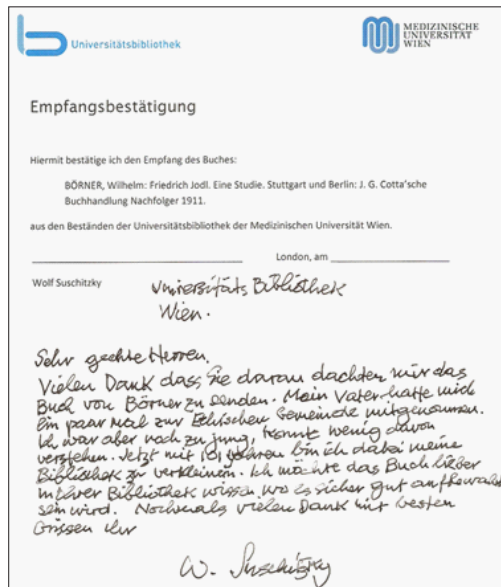 Universitätsbibliothek
MEDIZINISCHE
UNIVERSITÄT
WIEN
Empfangsbestätigung
Hiermit bestätige ich den Empfang des Buches:
BÖRNER, Wilhelm: Friedrich Jodl. Eine Studie. Stuttgart und Berlin: J. G. Cotta'sche
Buchhandlung Nachfolger 1911.
aus den Beständen der Universitätsbibliothek der Medizinischen Universität Wien.
London, am
Wolf Suschitzky
Universitäts Bibliothek
Wien.
Sehr geehrte Herren,
Vielen Dank dass Sie daran dachten mir das
Buch von Börner zu senden. Mein Vater hatte mich
Ein paar Mal zur Ethischen Gemeinde mitgenommen.
Ich war aber noch zu jung, konnte wenig davon
verstehen. Jetzt mit 101 Jahren bin ich dabei meine
Bibliothek zu verkleinen. Ich möchte das Buch lieber
in Ihrer Bibliothek wissen, wo es sicher gut aufbewahrt
sein wird. Nochmals vielen Dank mit besten
Grüssen Ihr
W. Suschitzky